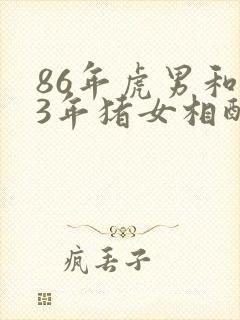 86年虎男和
3年猪女相配
疯丢子